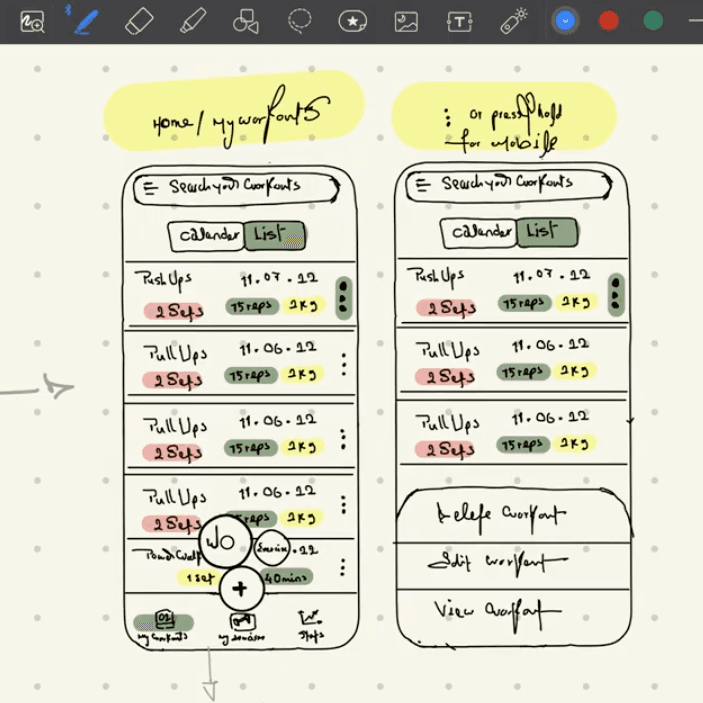 Home / My workouts
Search your workouts
Calander List
Push Ups 11.07.22
2 Sets 15 reps 2Kg
Pull Ups 11.06.22
2 Sets 15 reps 2Kg
Pull Ups 11.06.22
2 Sets 15 reps 2Kg
Pull Ups 11.06.22
2 Sets reps 2Kg
WO
.22
1 Set 40 mins
+
My workouts
Stats
⋮ or press hold
for mobile
Search your workouts
Calander List
Push Ups 11.07.22
2 Sets 15 reps 2Kg
Pull Ups 11.06.22
2 Sets 15 reps 2Kg
Pull Ups 11.06.22
2 Sets 15 reps 2Kg
Delete workout
Edit workout
View workout